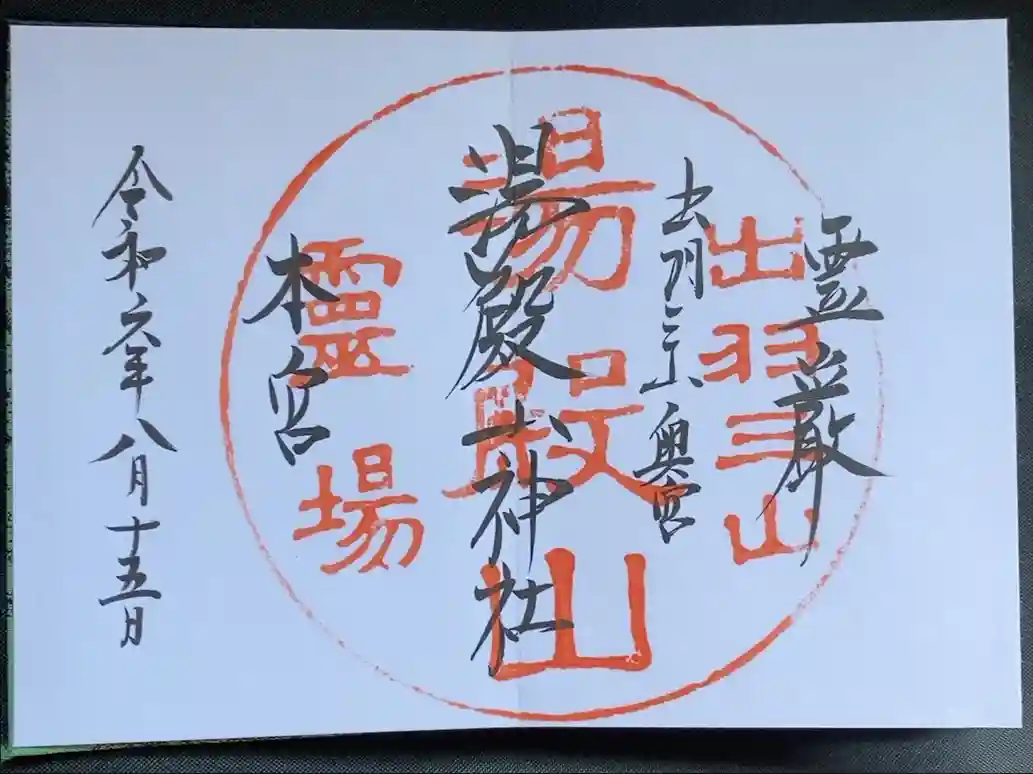 霊巌
出羽三山奥宮
湯殿山神社
本宮
令和六年八月十五日
出羽三山
湯殿山
靈場